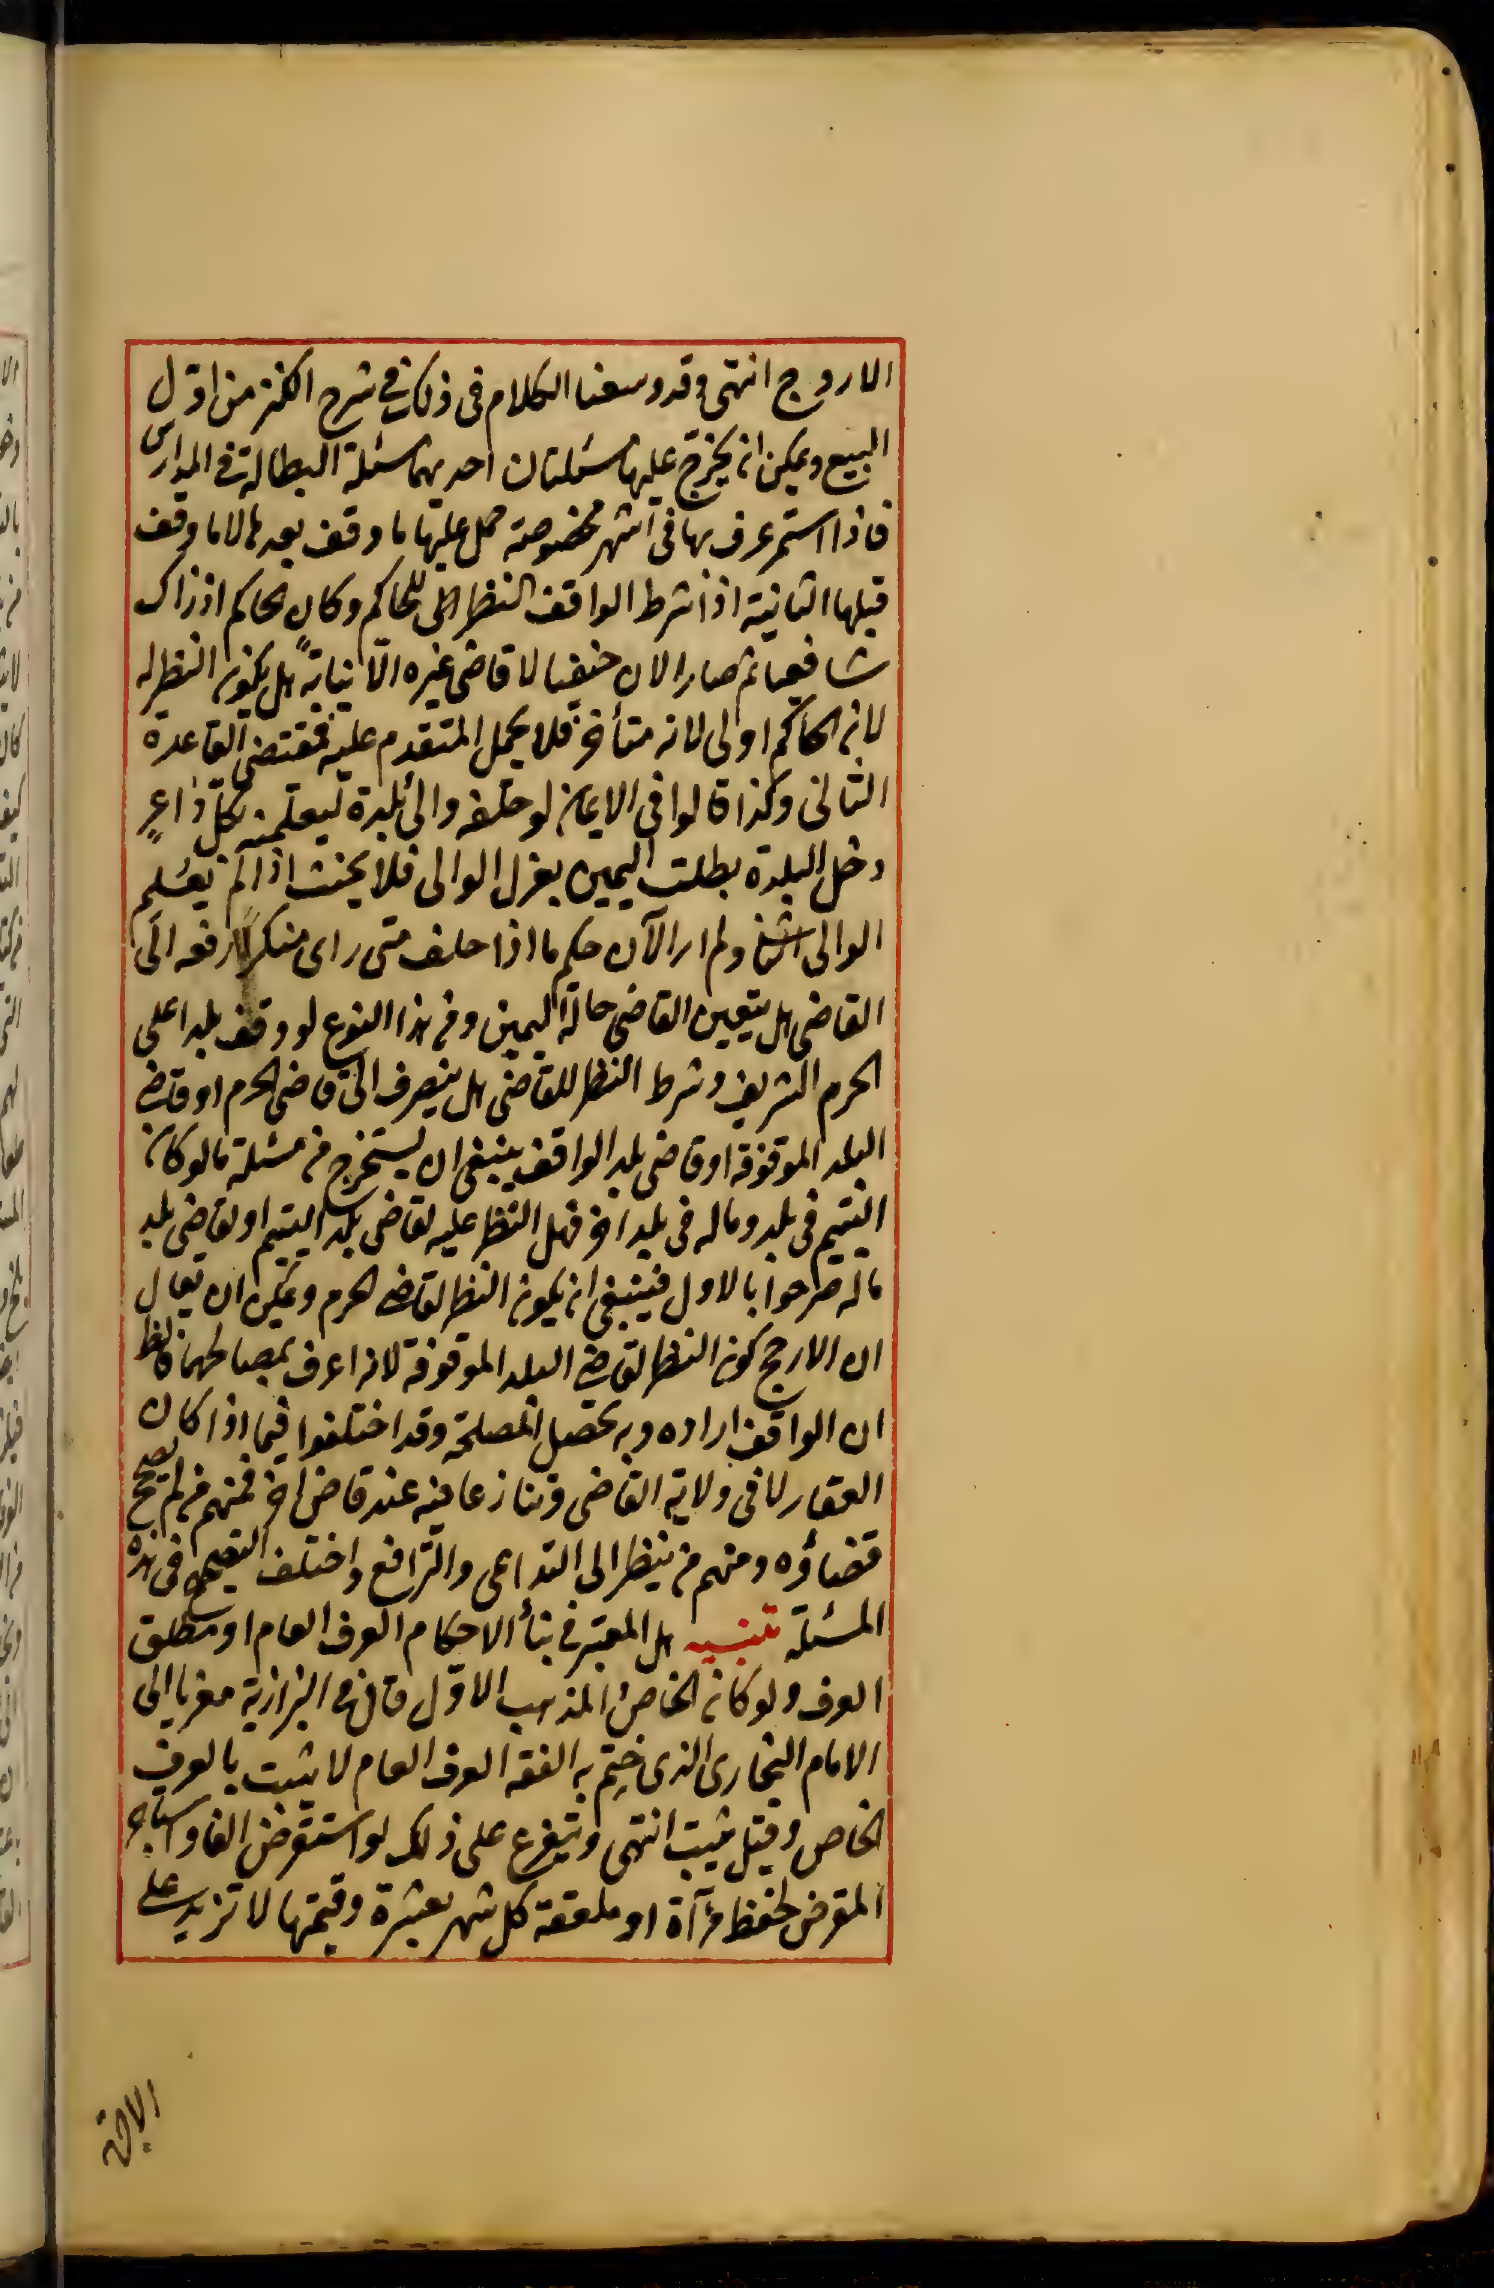 الاروج انتهى وقد وسعنا الكلام فى ذلك فى شرح الكنز من اوّل
البيع ويمكن ان يخرّج عليها مسئلتان احديهما مسئلة البطالة فى المدارس
فاذا استمر عرف بها فى اشهر مخصوصة حمل عليها ما وقف بعدها لا ما وقف
قبلها الثانية اذا شرط الواقف النظر الى للحاكم وكان الحاكم اذ ذاك
شافعيا ثم صار الان حنفيا لا قاضى غيره الّا نيابةً هل يكون النظر له
لانه الحاكم اولى لانه متأخر فلا يحمل المتقدم عليه فمقتضى القاعدة
الثانى وكذا قالوا فى الايمان لو حلفه والى بلدة ليعلمنه بكلّ داعرٍ
دخل البلدة بطلت اليمين بعزل الوالى فلا يحنث اذا لم يعلم
الوالى الثانى ولم ار الآن حكم ما اذا حلف متى راى منكرًا رفعه الى
القاضى هل يتعين القاضى حالة اليمين وفى هذا النوع لو وقف بلدا على
الحرم الشريف وشرط النظر للقاضى هل ينصرف الى قاضى الحرم او قاضى
البلد الموقوفة او قاضى بلد الواقف ينبغى ان يستخرج من مسئلة ما لو كان
اليتيم فى بلد وماله فى بلد اخر فهل النظر عليه لقاضى بلد اليتيم او لقاضى بلد
ماله صرحوا بالاول فينبغى ان يكون النظر لقاضى الحرم ويمكن ان يقال
ان الارجح كون النظر لقاضى البلد الموقوفة لانه اعرف بمصالحها فالظ
ان الواقف اراده وبه تحصل المصلحة وقد اختلفوا فيما اذا كان
العقار لا فى ولاية القاضى وتنازعا فيه عند قاض اخر فمنهم من لم يصحح
قضاؤه ومنهم من ينظر الى التداعى والترافع واختلف التصحيح فى هذه
المسئلة تنبيه هل المعتبر فى بنأ الاحكام العرف العام او مطلق
العرف ولو كان الخاص المذهب الاوّل قال فى البزازية معزيا الى
الامام البخارى الذى ختم به الفقه العرف العام لا يثبت بالعرف
الخاص وقيل يثبت انتهى ويتفرع على ذلك لو استقرض الفا واستأجر
المقرض لحفظ مرآة او ملعقة كل شهر بعشرة وقيمتها لا تزيد على